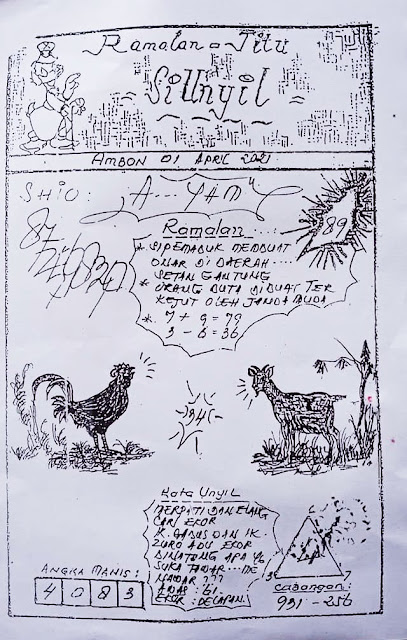 Ramalan = Jitu
SiUnyil
AMBON 01 APRIL 2021
SHIO:
A--YAM
87
89
Ramalan....
* SIPEMABUK MEMBUAT
ONAR DI DAERAH....
SETAN GANTUNG
* ORANG BUTA DIBUAT TER
KEJUT OLEH JANDA MUDA
* 7 + 9 = 79
3 - 6 = 36
Kata Unyil
MERPATI DAN ELANG
CARI EKOR
K. GABUS DAN IK.
ADU EKOR
BINATONG APA YG
SUKA TAWAR...
???
EMAS: 61.
EKOR: DELAPAN.
ANGKA MANIS:
4 0 8 3
Cabangan:
991 - 256